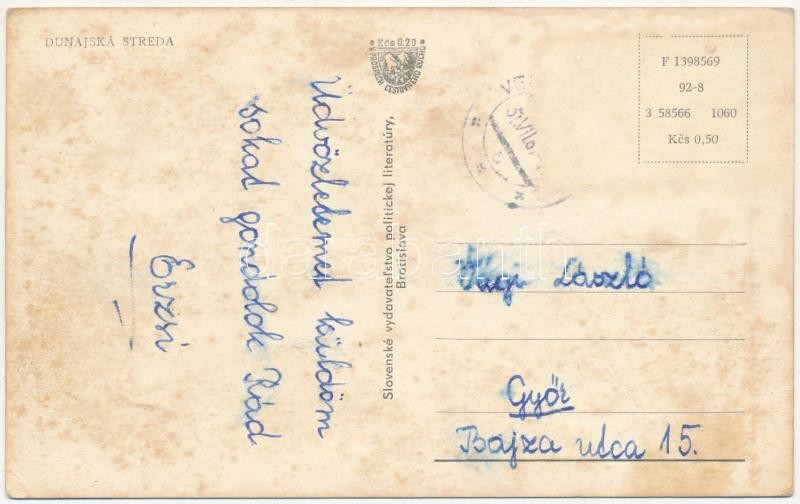 DUNAJSKÁ STREDA
Kčs 0.20
V PROSPECH CESTOVNÉHO RUCHU
Üdvözletemet küldöm
sokat gondolok Rád
Erzsi
Slovenské vydavateľstvo politickej literatúry,
Bratislava
F 1398569
92-8
3 58566 1060
Kčs 0,50
László
Győr
Bajza utca 15.
darabanth